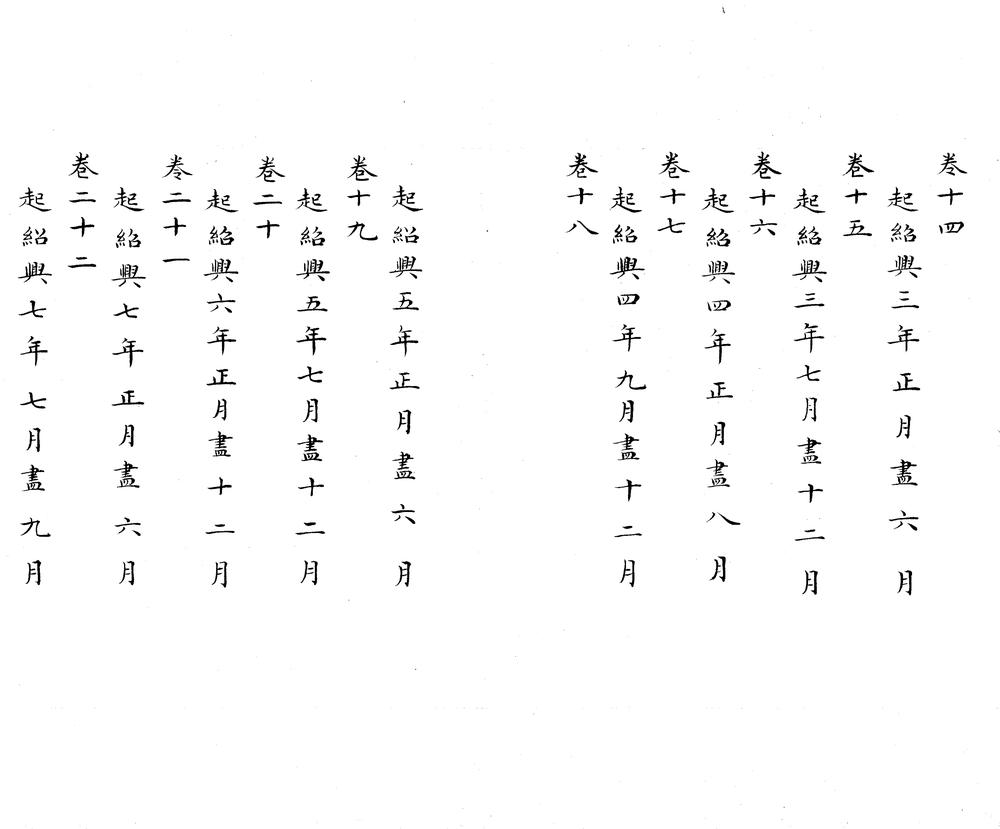 卷十四
起紹興三年正月盡六月
卷十五
起紹興三年七月盡十二月
卷十六
起紹興四年正月盡八月
卷十七
起紹興四年九月盡十二月
卷十八
起紹興五年正月盡六月
卷十九
起紹興五年七月盡十二月
卷二十
起紹興六年正月盡十二月
卷二十一
起紹興七年正月盡六月
卷二十二
起紹興七年七月盡九月